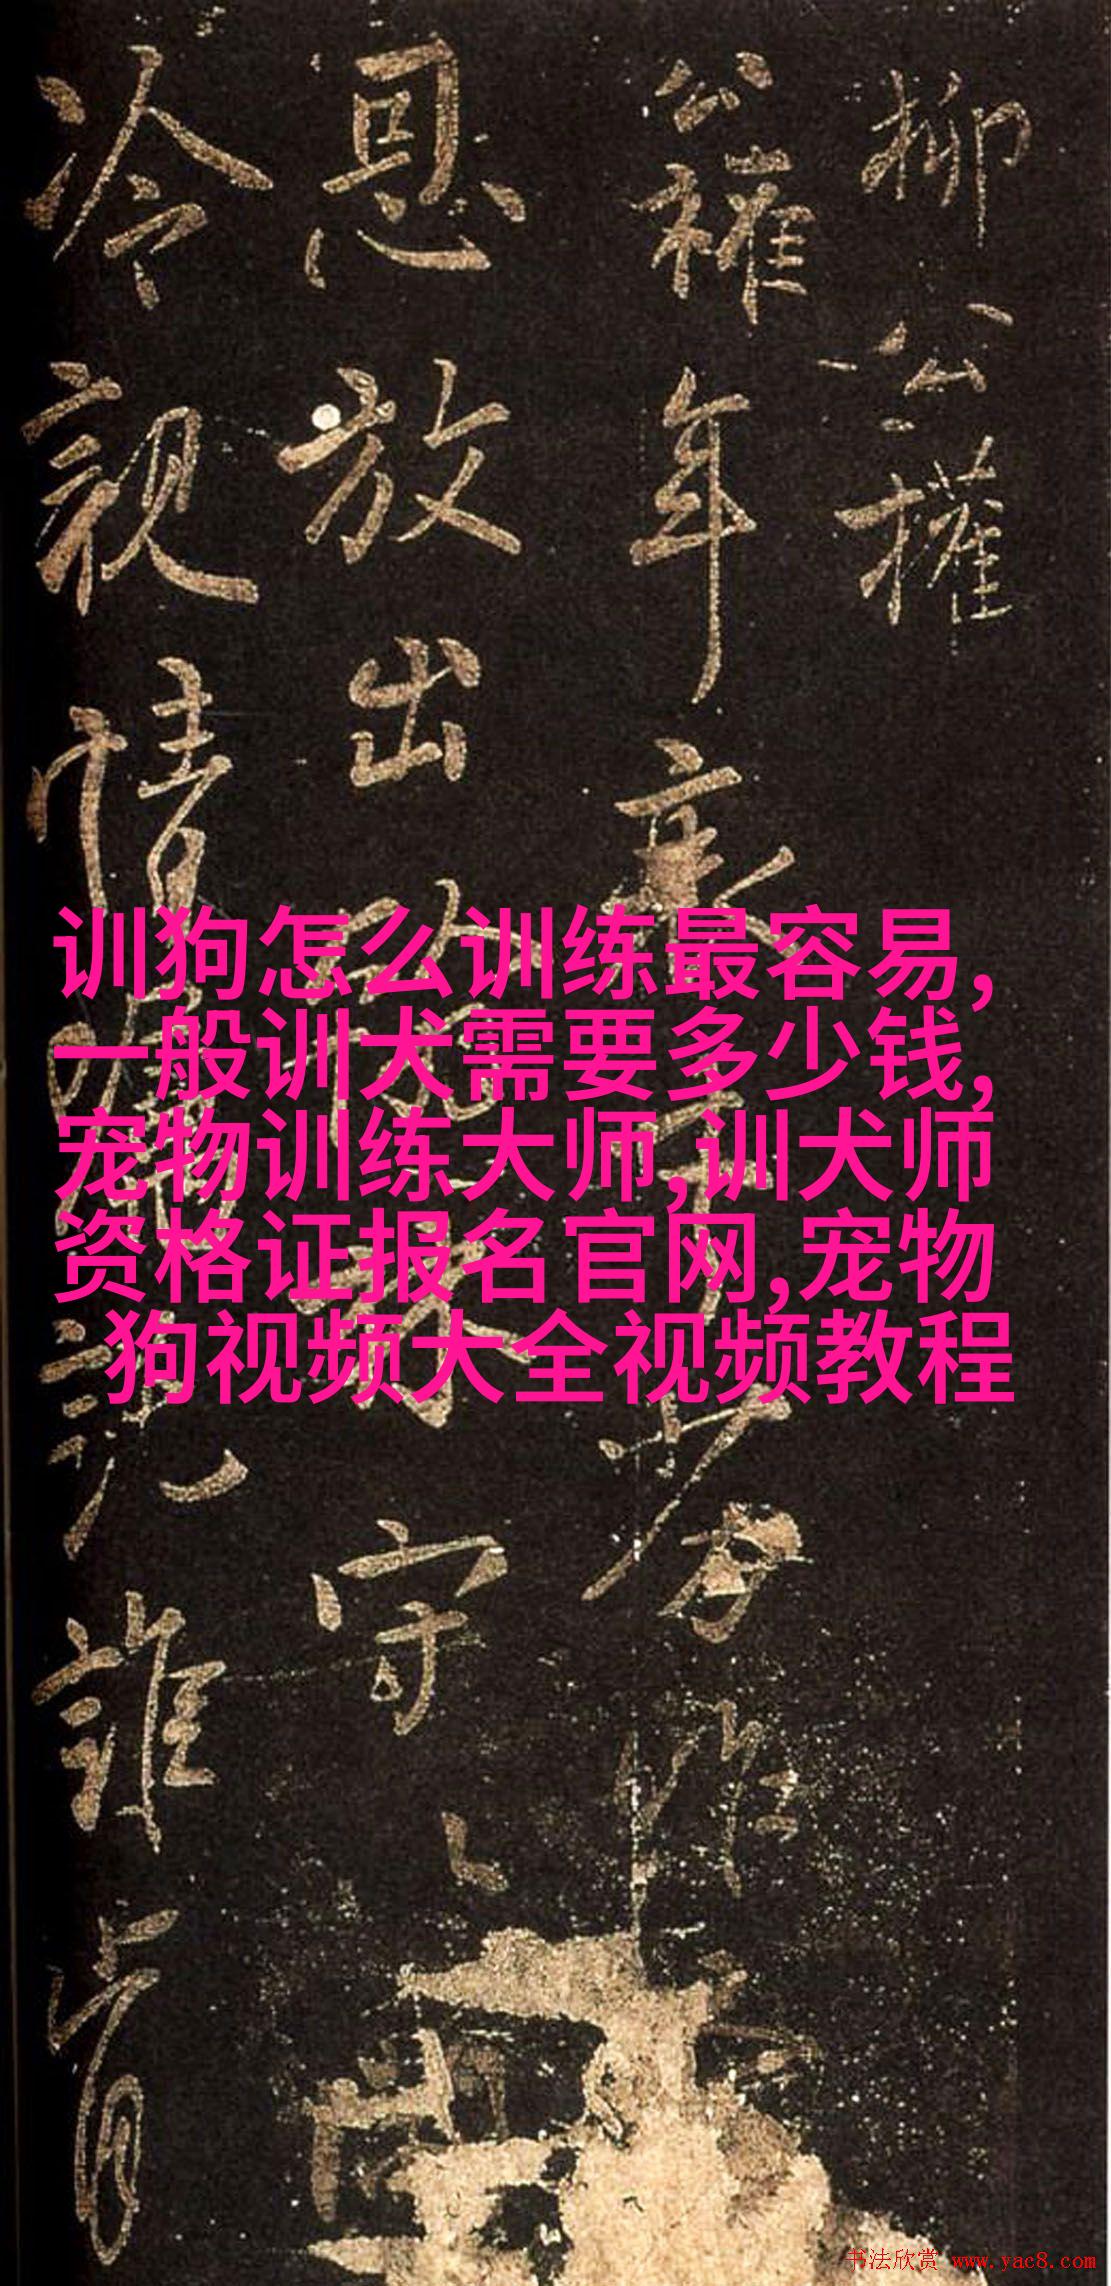 柳公權
公權年衰才劣昨
恩放出翰林守
冷親情嘱託誰肯
训狗怎么训练最容易,
一般训犬需要多少钱,
宠物训练大师,训犬师
资格证报名官网,宠物
狗视频大全视频教程
书法欣赏 www.yac8.com